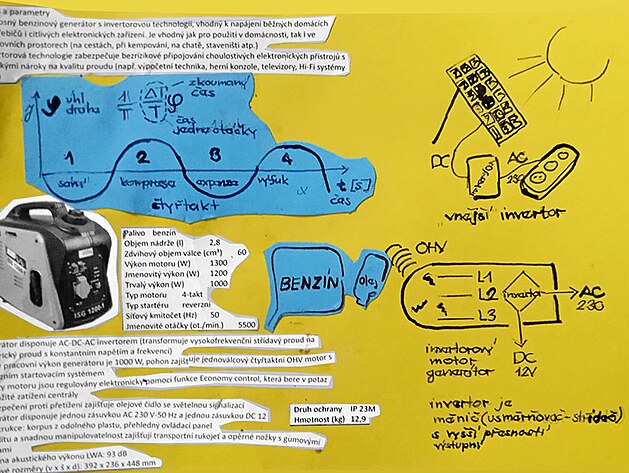 a parametry
osný benzinový generátor s invertorovou technologií, vhodný k napájení běžných domácích
řebičů i citlivých elektrických zařízení. Je vhodný jak pro použití v domácnosti, tak i ve
ovních prostorech (na cestách, při kempování, na chatě, staveništi atp.)
rtorová technologie zabezpečuje bezrizikové připojování choulostivých elektronických přístrojů s
kými nároky na kvalitu proudu (např. výpočetní technika, herní konzole, televizory, Hi-Fi systémy
y
φ úhl
dráha
ΔT
T
φ
zkoumaný
čas
čas
jedné otáčky
1
2
3
4
sání
komprese
expanze
výfuk
t [s]
čas
čtyřtakt
DC
AC
230
vnější invertor
ISG 1200-1
Palivo benzin
Objem nádrže (l) 2,8
Zdvihový objem válce (cm³) 60
Výkon motoru (W) 1300
Jmenovitý výkon (W) 1200
Trvalý výkon (W) 1000
Typ motoru 4-takt
Typ startéru reverzní
Síťový kmitočet (Hz) 50
Jmenovité otáčky (ot./min.) 5500
BENZÍN
olej
OHV
L1
L2
L3
invertor
AC
230
DC
12V
invertorový
motor
generátor
invertor je
měnič (usměrňovač-střídač)
s vyšší přesností
výstupní
rátor disponuje AC-DC-AC invertorem (transformuje vysokofrekvenční střídavý proud na
rický proud s konstantním napětím a frekvencí)
pracovní výkon generátoru je 1000 W, pohon zajišťuje jednoválcový čtyřtaktní OHV motor s
ním startovacím systémem
y motoru jsou regulovány elektronicky pomocí funkce Economy control, která bere v potaz
ité zatížení centrály
zpečení proti přetížení zajišťuje olejové čidlo se světelnou signalizací
rátor disponuje jednou zásuvkou AC 230 V-50 Hz a jednou zásuvkou DC 12
rukce: korpus z odolného plastu, přehledný ovládací panel
litu a snadnou manipulovatelnost zajišťují transportní rukojeť a opěrné nožky s gumovými
ami
na akustického výkonu LWA: 93 dB
é rozměry (v x š x d): 392 x 236 x 448 mm
Druh ochrany IP 23M
Hmotnost (kg) 12,9